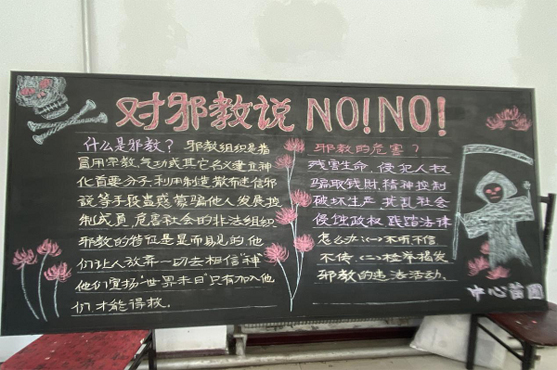 对邪教说NO!NO!
什么是邪教? 邪教组织是指
冒用宗教、气功或其它名义建立神
化首要分子,利用制造、散布迷信邪
说等手段蛊惑、蒙骗他人发展、控
制成员,危害社会的非法组织.
邪教的特征是显而易见的.他
们让人放弃一切去相信"神".
他们宣扬"世界末日"只有加入他
们,才能得救.
邪教的危害?
残害生命,侵犯人权
骗取钱财 精神控制
破坏生产 扰乱社会
侵蚀政权 践踏法律
怎么办:(一)不听不信
不传 (二)检举揭发
邪教的违法活动.
中心苗圃